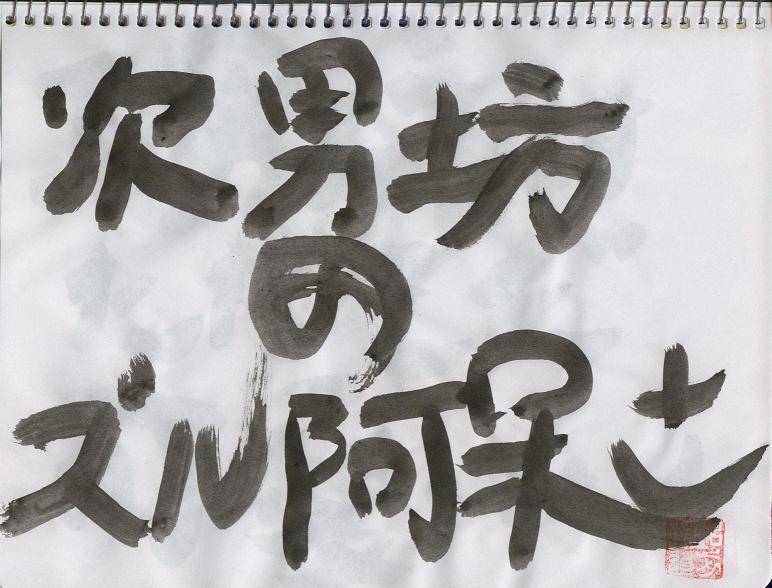 次男坊
の
ズル阿呆さ